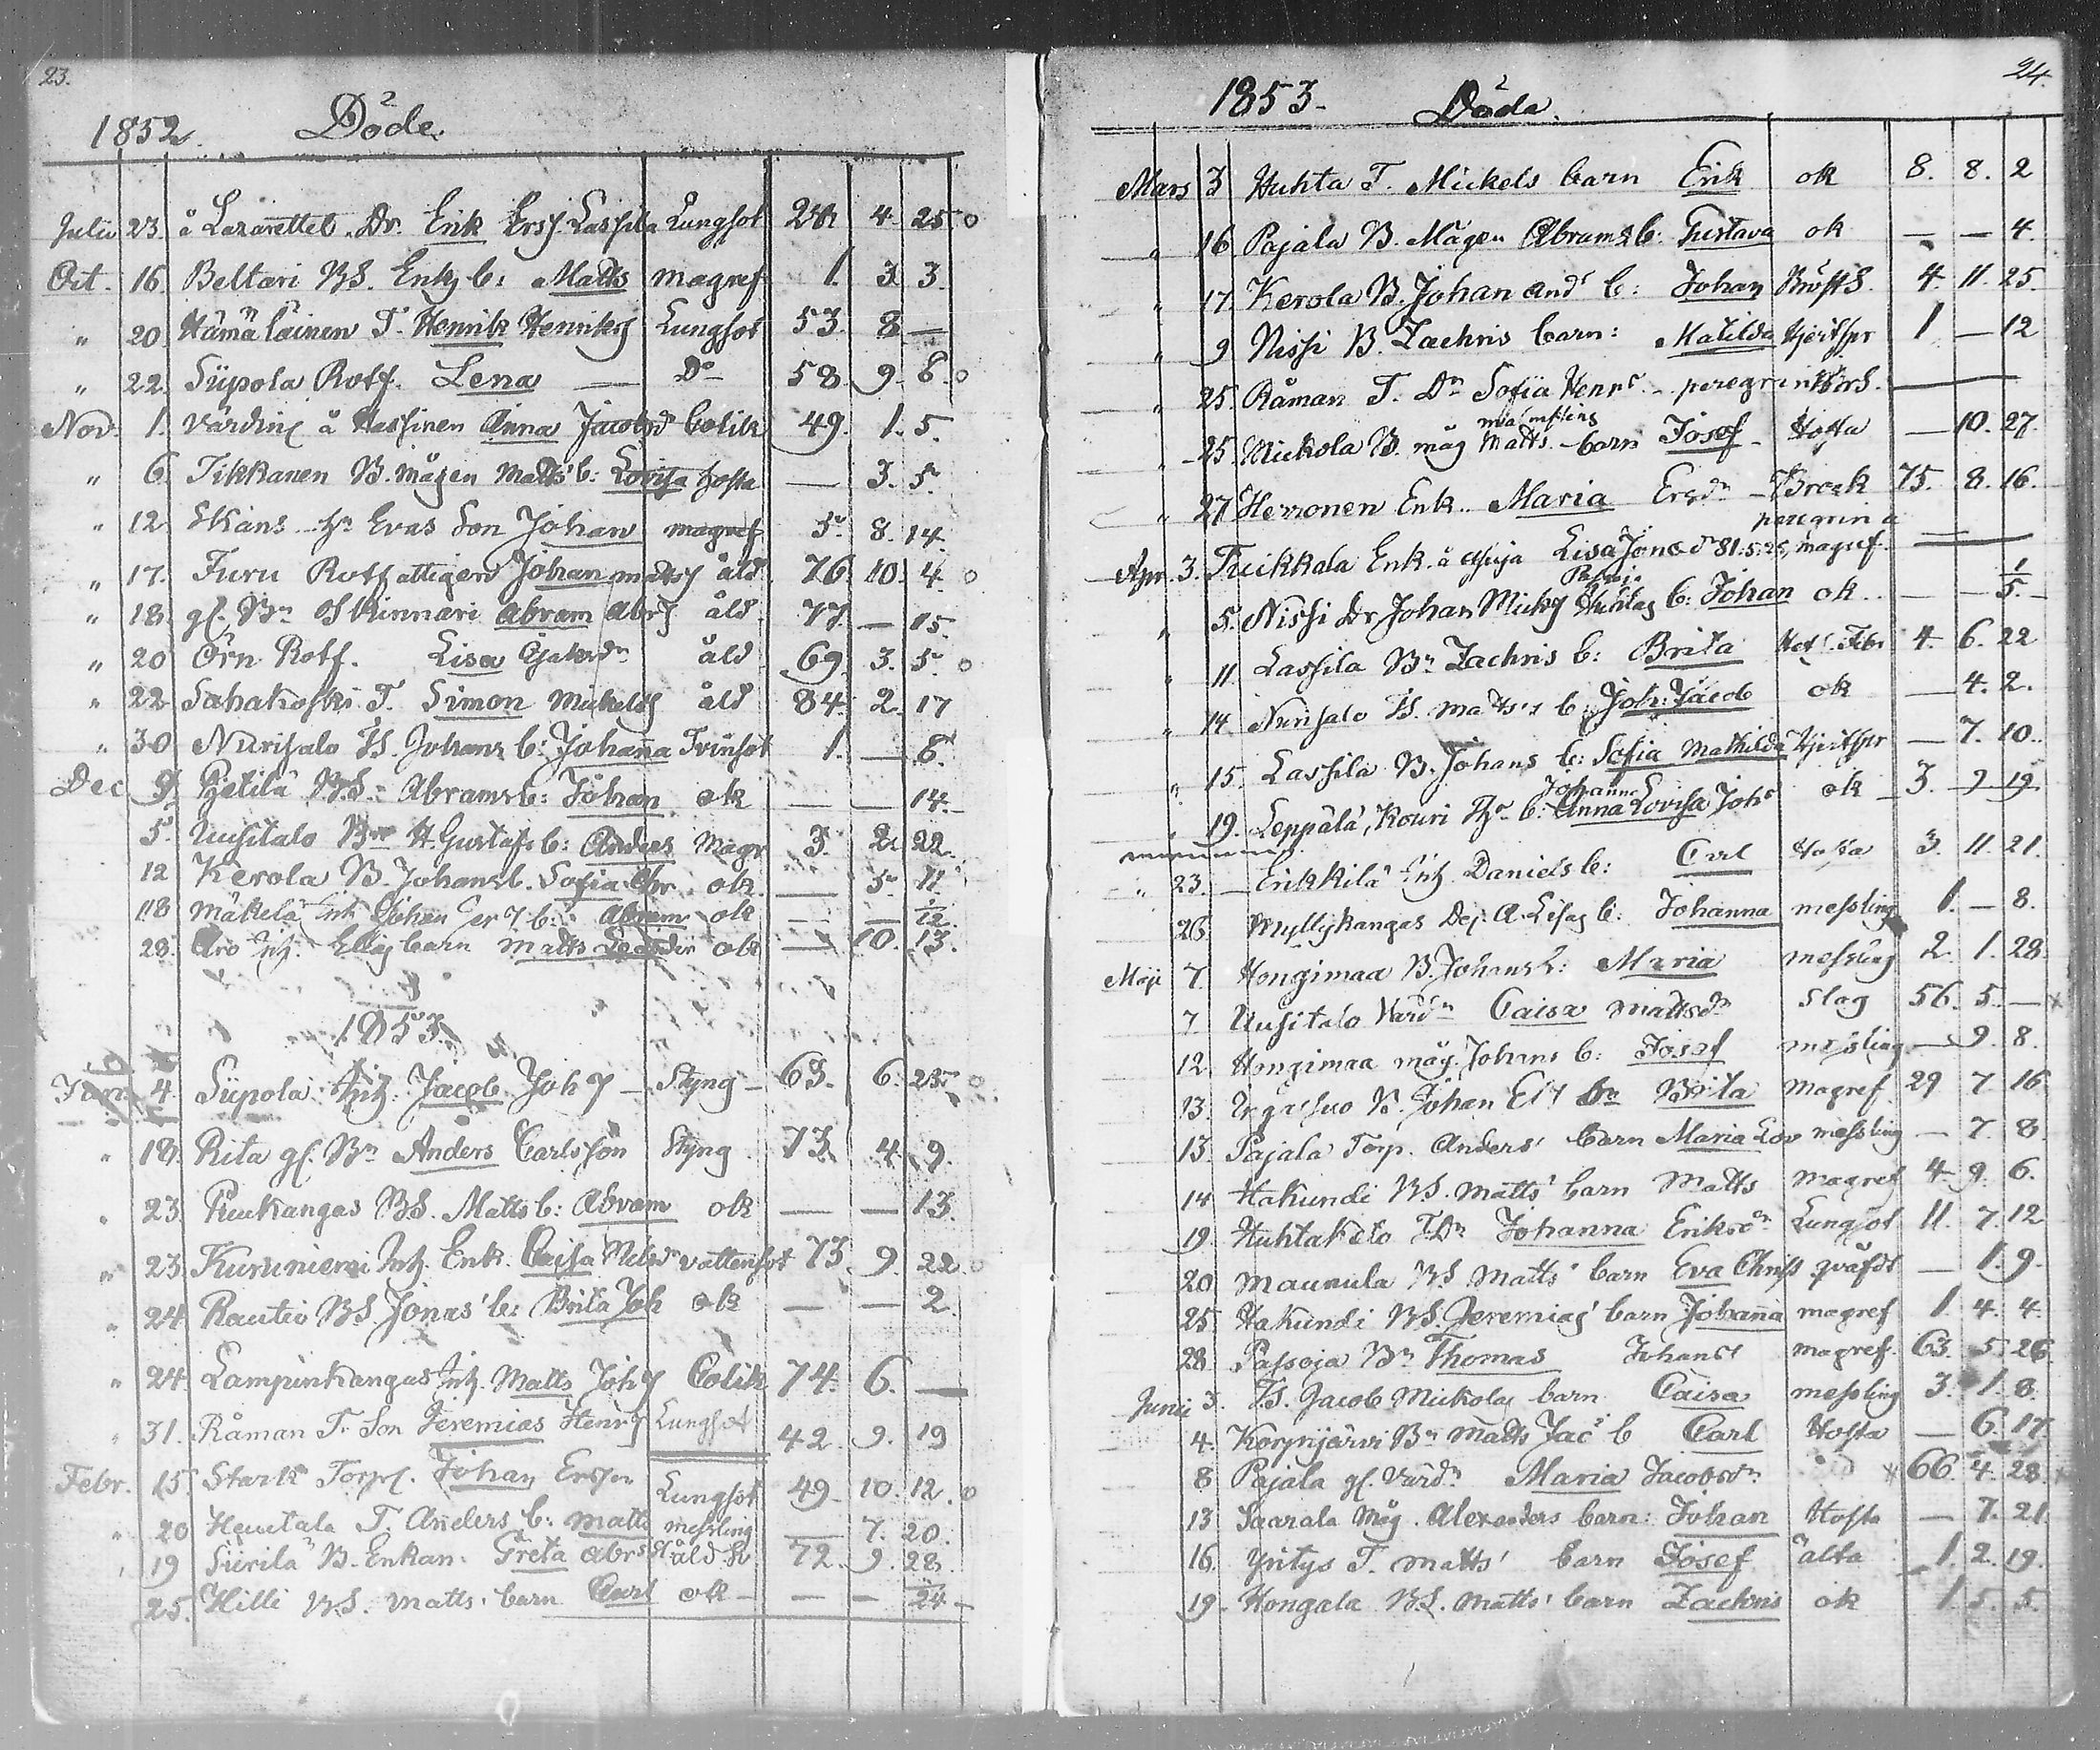 23.
1852. Döde.
Julii 23. å Lazarettet Dr. Erik Ersf. Lassila Lungsot 24 4. 25 o
Oct. 16. Beltari BS. Enks b: Matts magref 1. 3 3.
" 20 Hämäläinen T. Henrik Henriks Lungsot 53. 8 —
" 22. Siipola Rotf. Lena — Do 58. 9. 8. o
Nov. 1. Värdinn å Hassinen Anna Jacobsd Colik 49. 1. 5.
" 6. Tikkanen B. mågen Matts' b: Lovisa hosta — 3. 5.
" 12 Skäns Evas Son Johan magref 5. 8. 14.
" 17. Furu Rotfattigen Johan Matts åld. 76. 10. 4. o
" 18. gl. Bn Skinnari Abram Abr åld. 77. — 15.
" 20 Örn Rotf. Lisa åld 69. 3. 5. o
" 22 Sahakoski T. Simon Mickels åld 84. 2. 17
" 30 Nurisalo Johans b: Johanna Tvinsot 1. — 8.
Dec 9 Pietilä BS. Abrams b: Johan ok — — 14.
5. Uusitalo Gustafs b: Anders Magr 3. 2. 22.
12 Kerola B. Johans b. Sofia ok. — 5. 11.
18 Mäkelä Johan b: Abram ok — — 12.
28. Aro Elias barn Matts ok — 10. 13.
1853.
Jan 4. Siipola Inh. Jacob Joh — Styng — 63. 6. 25. o
" 18. Rita gl. Bn Anders Carlsson Styng 73. 4. 9.
" 23. Puukangas BS. Matts b: Abram ok — — 13.
" 23. Kuruniemi Inh. Enk. Caisa Nilsdr vattensot 73. 9. 22. o
" 24. Rautio BS. Jonas' b: Brita Joh ok — — 2.
" 24. Lampinkangas Inh. Matts Joh Colik 74. 6. —
" 31. Råman T. Son Jeremias Henr Lungsot 42. 9. 19
Febr. 15. Stark Torp. Johan Ersson Lungsot 49. 10. 12. o
" 20 Hautala T. Anders b: Matts messling — 7. 20.
" 19 Siirilä B. Enkan. Greta Abrs åld 72. 9. 28.
25. Hilli BS. Matts' barn Carl ok — — — 24 —
24.
1853. Döda.
Mars 3 Huhta T. Mickels barn Erik ok 8. 8. 2
" 16 Pajala B. Mågen Abrams b: Gustava ok — — 4.
" 17. Kerola B. Johan And b: Johan BröstS. 4. 11. 25.
" 9 Nissi B. Zachris barn: Matilda Hjertspr 1 — 12
" 25. Råman T. Dn Sofia Henr. — peregrin —
messling
" 25. Mickola B. måg Matts barn Josef Hosta — 10. 27.
" 27 Herronen Enk. Maria Ersdr — Bröck 75. 8. 16.
peregrin a
Apr. 3. Enk. å Lisa Jonsdr 81. 5. 25, magref —
5. Nissi Dr Johan Mick b: Johan ok. — — 5. —
" 11 Lassila Bn Zachris b: Brita Het. Febr 4. 6. 22
" 14. Nurisalo Matts's b: Joh: Jacob ok — 4. 2.
" 15. Lassila B. Johans b: Sofia Mathilda Hjertspr — 7. 10.
Johanna
" 19. Leppälä, Kouri b: Anna Lovisa Joh ok 3. 9. 19.
" 23. Erikkilä Inh. Daniels b: Carl Hosta 3. 11. 21.
26 Myllykangas Dej. A. Lisas b: Johanna messling 1. — 8.
Maji 7. Hongimaa B. Johans b: Maria messling 2. 1. 28.
7 Uusitalo Värdn Caisa Mattsdr Slag 56. 5. — x
12. Hongimaa måg. Johans b: Josef messling — 9. 8.
13. B. Johan Brita Magref. 29 7 16
13. Pajala Torp. Anders' barn Maria Lov messling — 7. 8.
14 Hakundi BS. Matts' barn Matts magref 4. 9. 6.
19 Huhtakéto T.Dr Johanna Eriksdr Lungsot 11. 7. 12
20 Maunula BS Matts' barn Eva Chris qväfdt — 1. 9.
25. Hakundi BS. Jeremias' barn Johanna magref 1 4. 4.
28 Passoja Bn Thomas Johans magref. 63. 5. 26.
Junii 3. Jacob Mickolas barn Caisa messling 3. 1. 8.
4. Korpijärvi Bn Matts Jac b Carl Hosta — 6. 17.
8 Pajala gl. Värdn Maria Jacobsdr x 66. 4. 28. x
13 Saarala Måg. Alexanders barn: Johan Hosta — 7. 21
16. Yritys T. Matts' barn Josef ålta 1. 2. 19.
19. Hongala BS. Matts' barn Zachris ok 1. 5. 5.